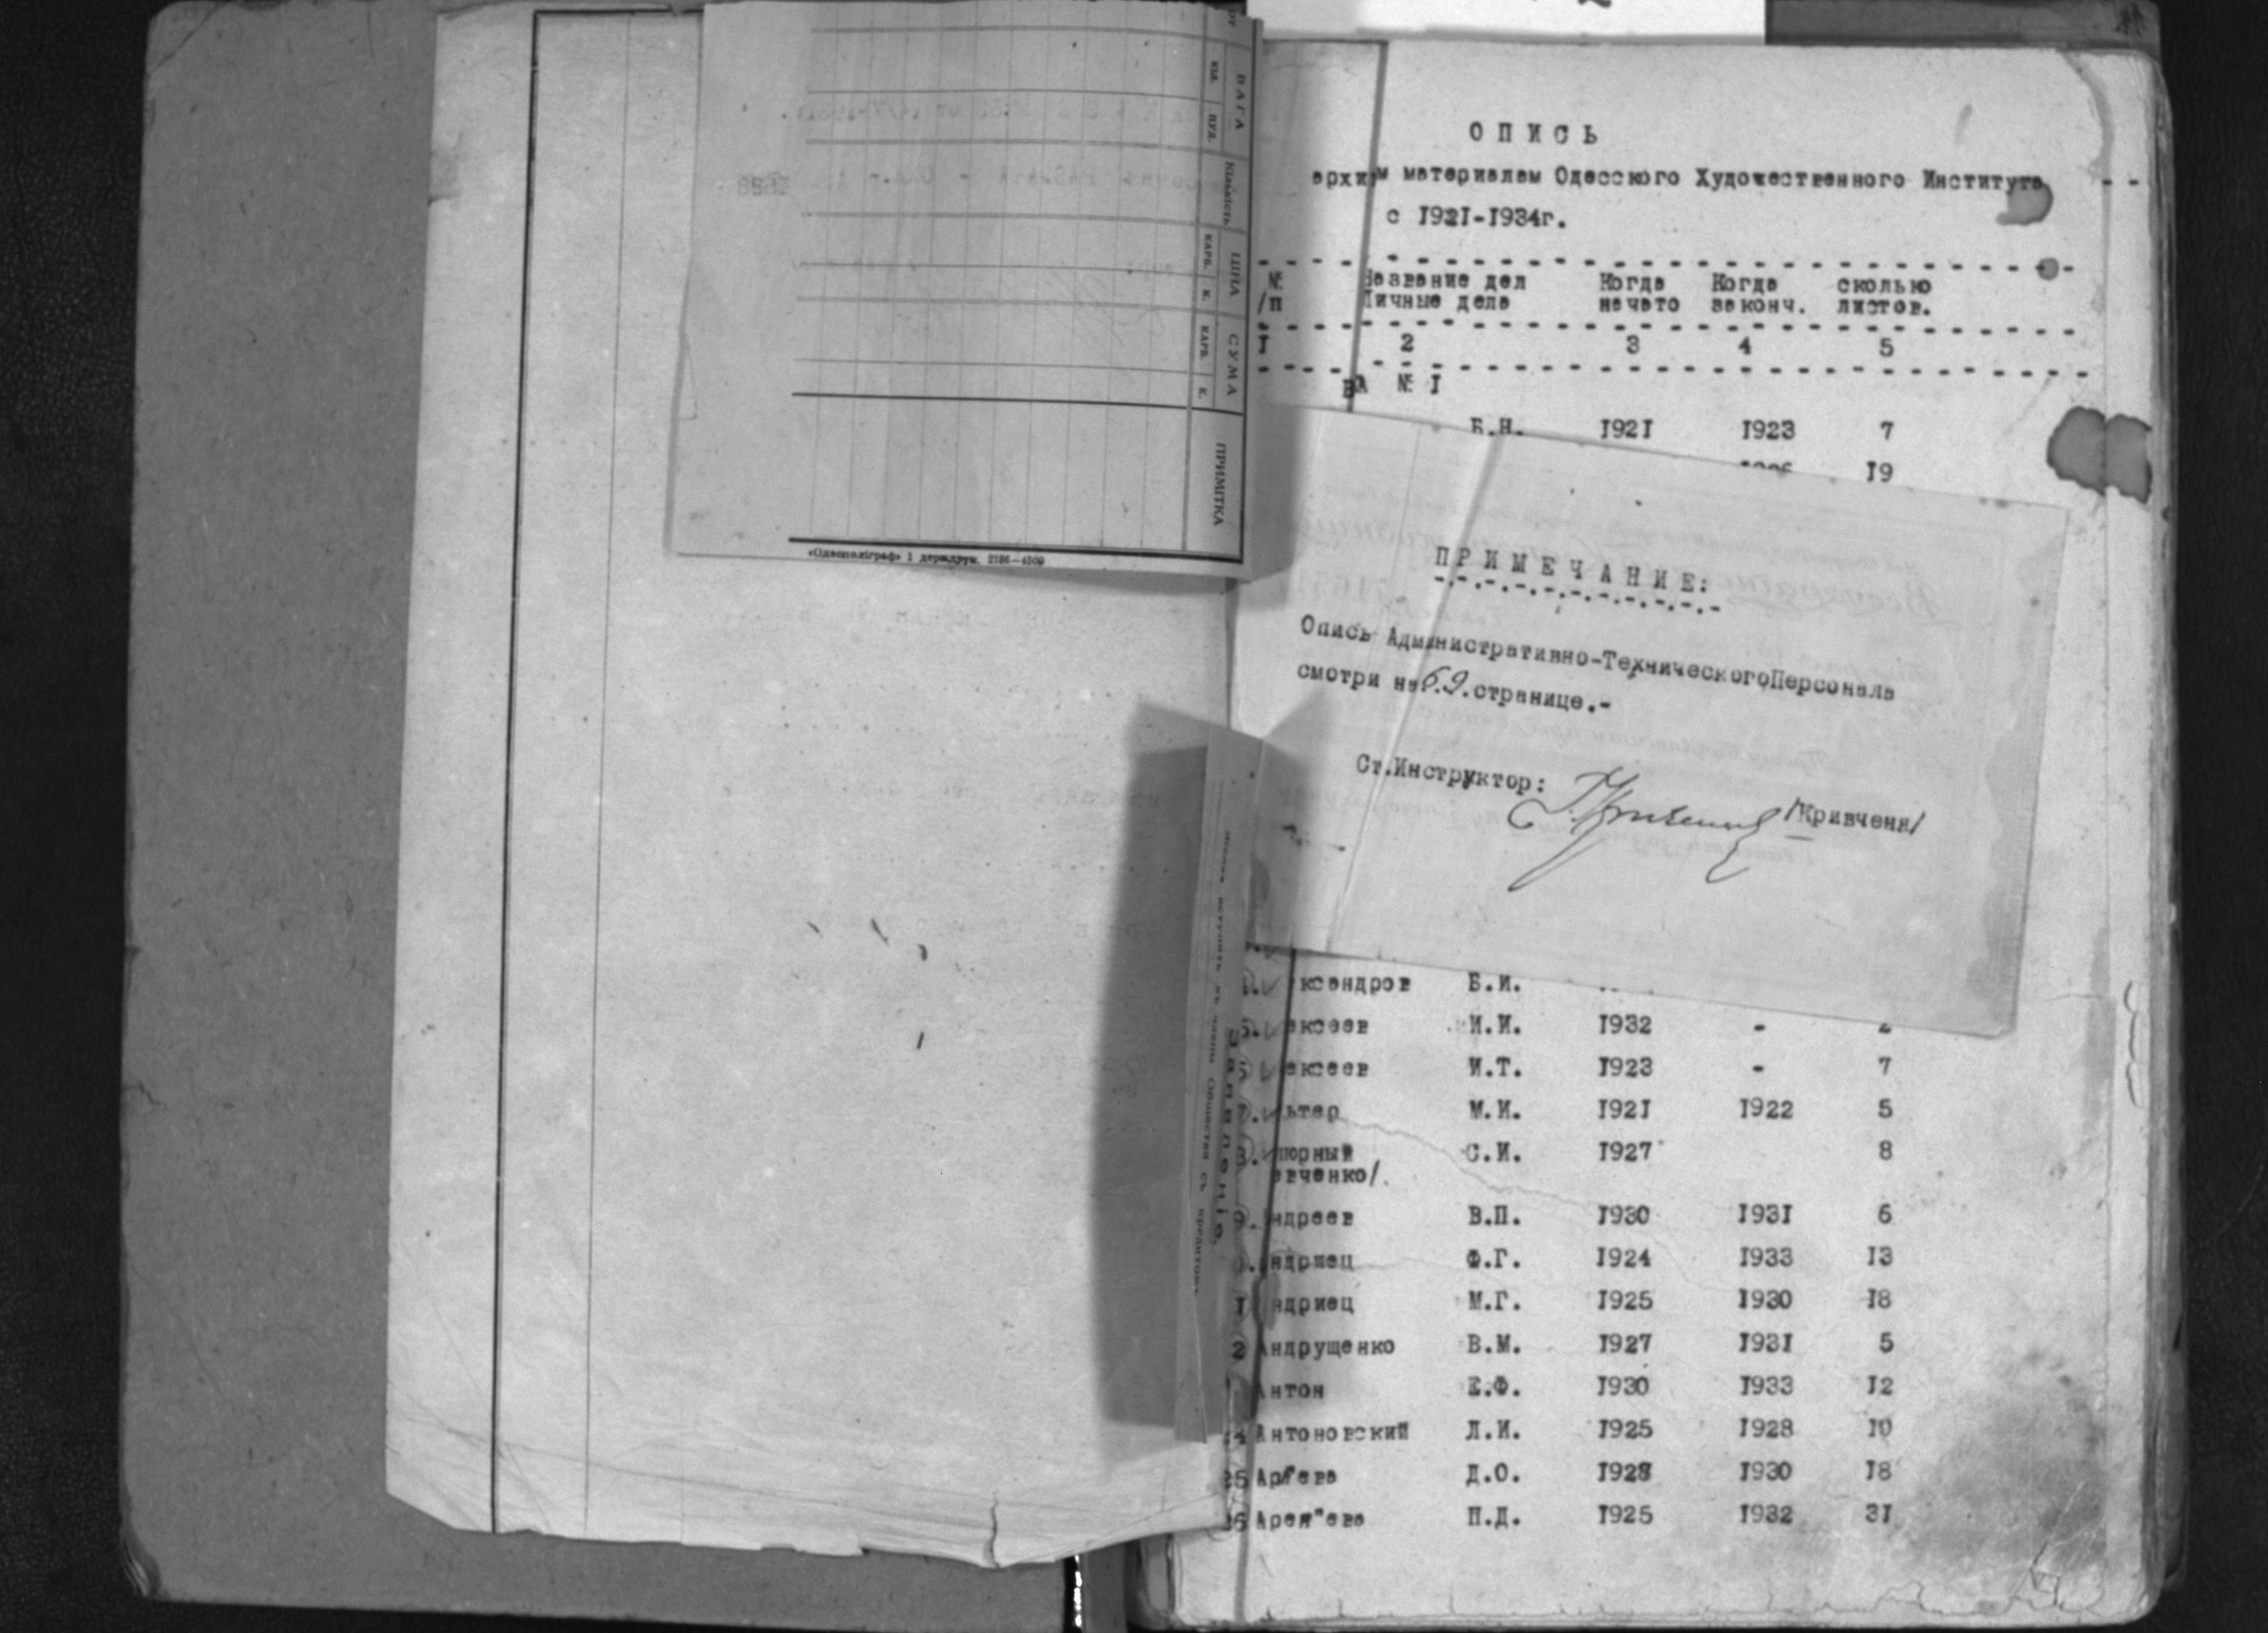 ВАГА
КІЛ.
ПУД.
Кількість
ЦІНА
КАРБ.
К.
СУМА
КАРБ.
К.
ПРИМІТКА
«Одесполіграф» 1 держдрук. 2186—4509
О П И С Ь
архи м материалам Одесского Художественного Института
с 1921-1934г.
№ Название дел Когда Когда сколько
/п Личные дела начато законч. листов.
1 2 3 4 5
ВА № 1
Б.Н. 1921 1923 7
19
П Р И М Е Ч А Н И Е:
Опись Административно-ТехническогоПерсонала
смотри на 69. странице.-
Ст.Инструктор: /Кривченя/
ксандров Б.И.
5. ексеев И.И. 1932 - 2
6 ексеев И.Т. 1923 - 7
7. ьтер М.И. 1921 1922 5
8. порный С.И. 1927 8
евченко/.
9. ндреев В.П. 1930 1931 6
ндриец Ф.Г. 1924 1933 13
1 ндриец М.Г. 1925 1930 18
2 Андрущенко В.М. 1927 1931 5
Антон Е.Ф. 1930 1933 12
4 Антоновский Л.И. 1925 1928 10
25 Д.О. 1928 1930 18
26 П.Д. 1925 1932 31
Заявленіе.
Общества съ